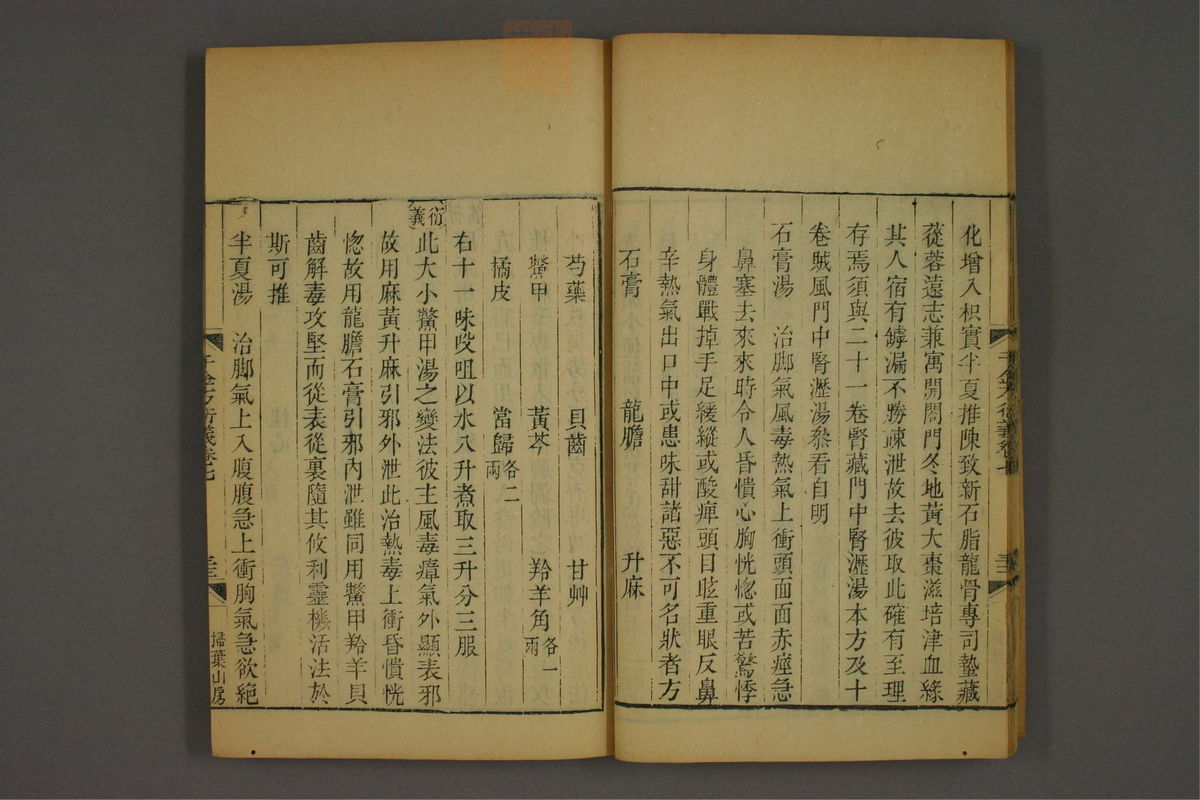 化增入枳實半夏推陳致新石脂龍骨專司蟄藏
蓯蓉遠志兼寓開闔門冬地黃大棗滋培津血緣
其人宿有罅漏不勝疎泄故去彼取此確有至理
存焉須與二十一卷腎藏門中腎瀝湯本方及十
卷賊風門中腎瀝湯叅看自明
石膏湯 治脚氣風毒熱氣上衝頭面面赤痙急
鼻塞去來來時令人昏憒心胸恍惚或苦驚悸
身體戰掉手足緩縱或酸痺頭目眩重眼反鼻
辛熱氣出口中或患味甜諸惡不可名狀者方
石膏 龍膽 升麻
芍藥 貝齒 甘艸
鱉甲 黃芩 羚羊角各一兩
橘皮 當歸各二兩
右十一味㕮咀以水八升煮取三升分三服
衍義
此大小鱉甲湯之變法彼主風毒瘴氣外顯表邪
故用麻黃升麻引邪外泄此治熱毒上衝昏憒恍
惚故用龍膽石膏引邪內泄雖同用鱉甲羚羊貝
齒解毒攻堅而從表從裏隨其攸利靈機活法於
斯可推
半夏湯 治脚氣上入腹腹急上衝胸氣急欲絕
千金方衍義卷七
三三
掃葉山房